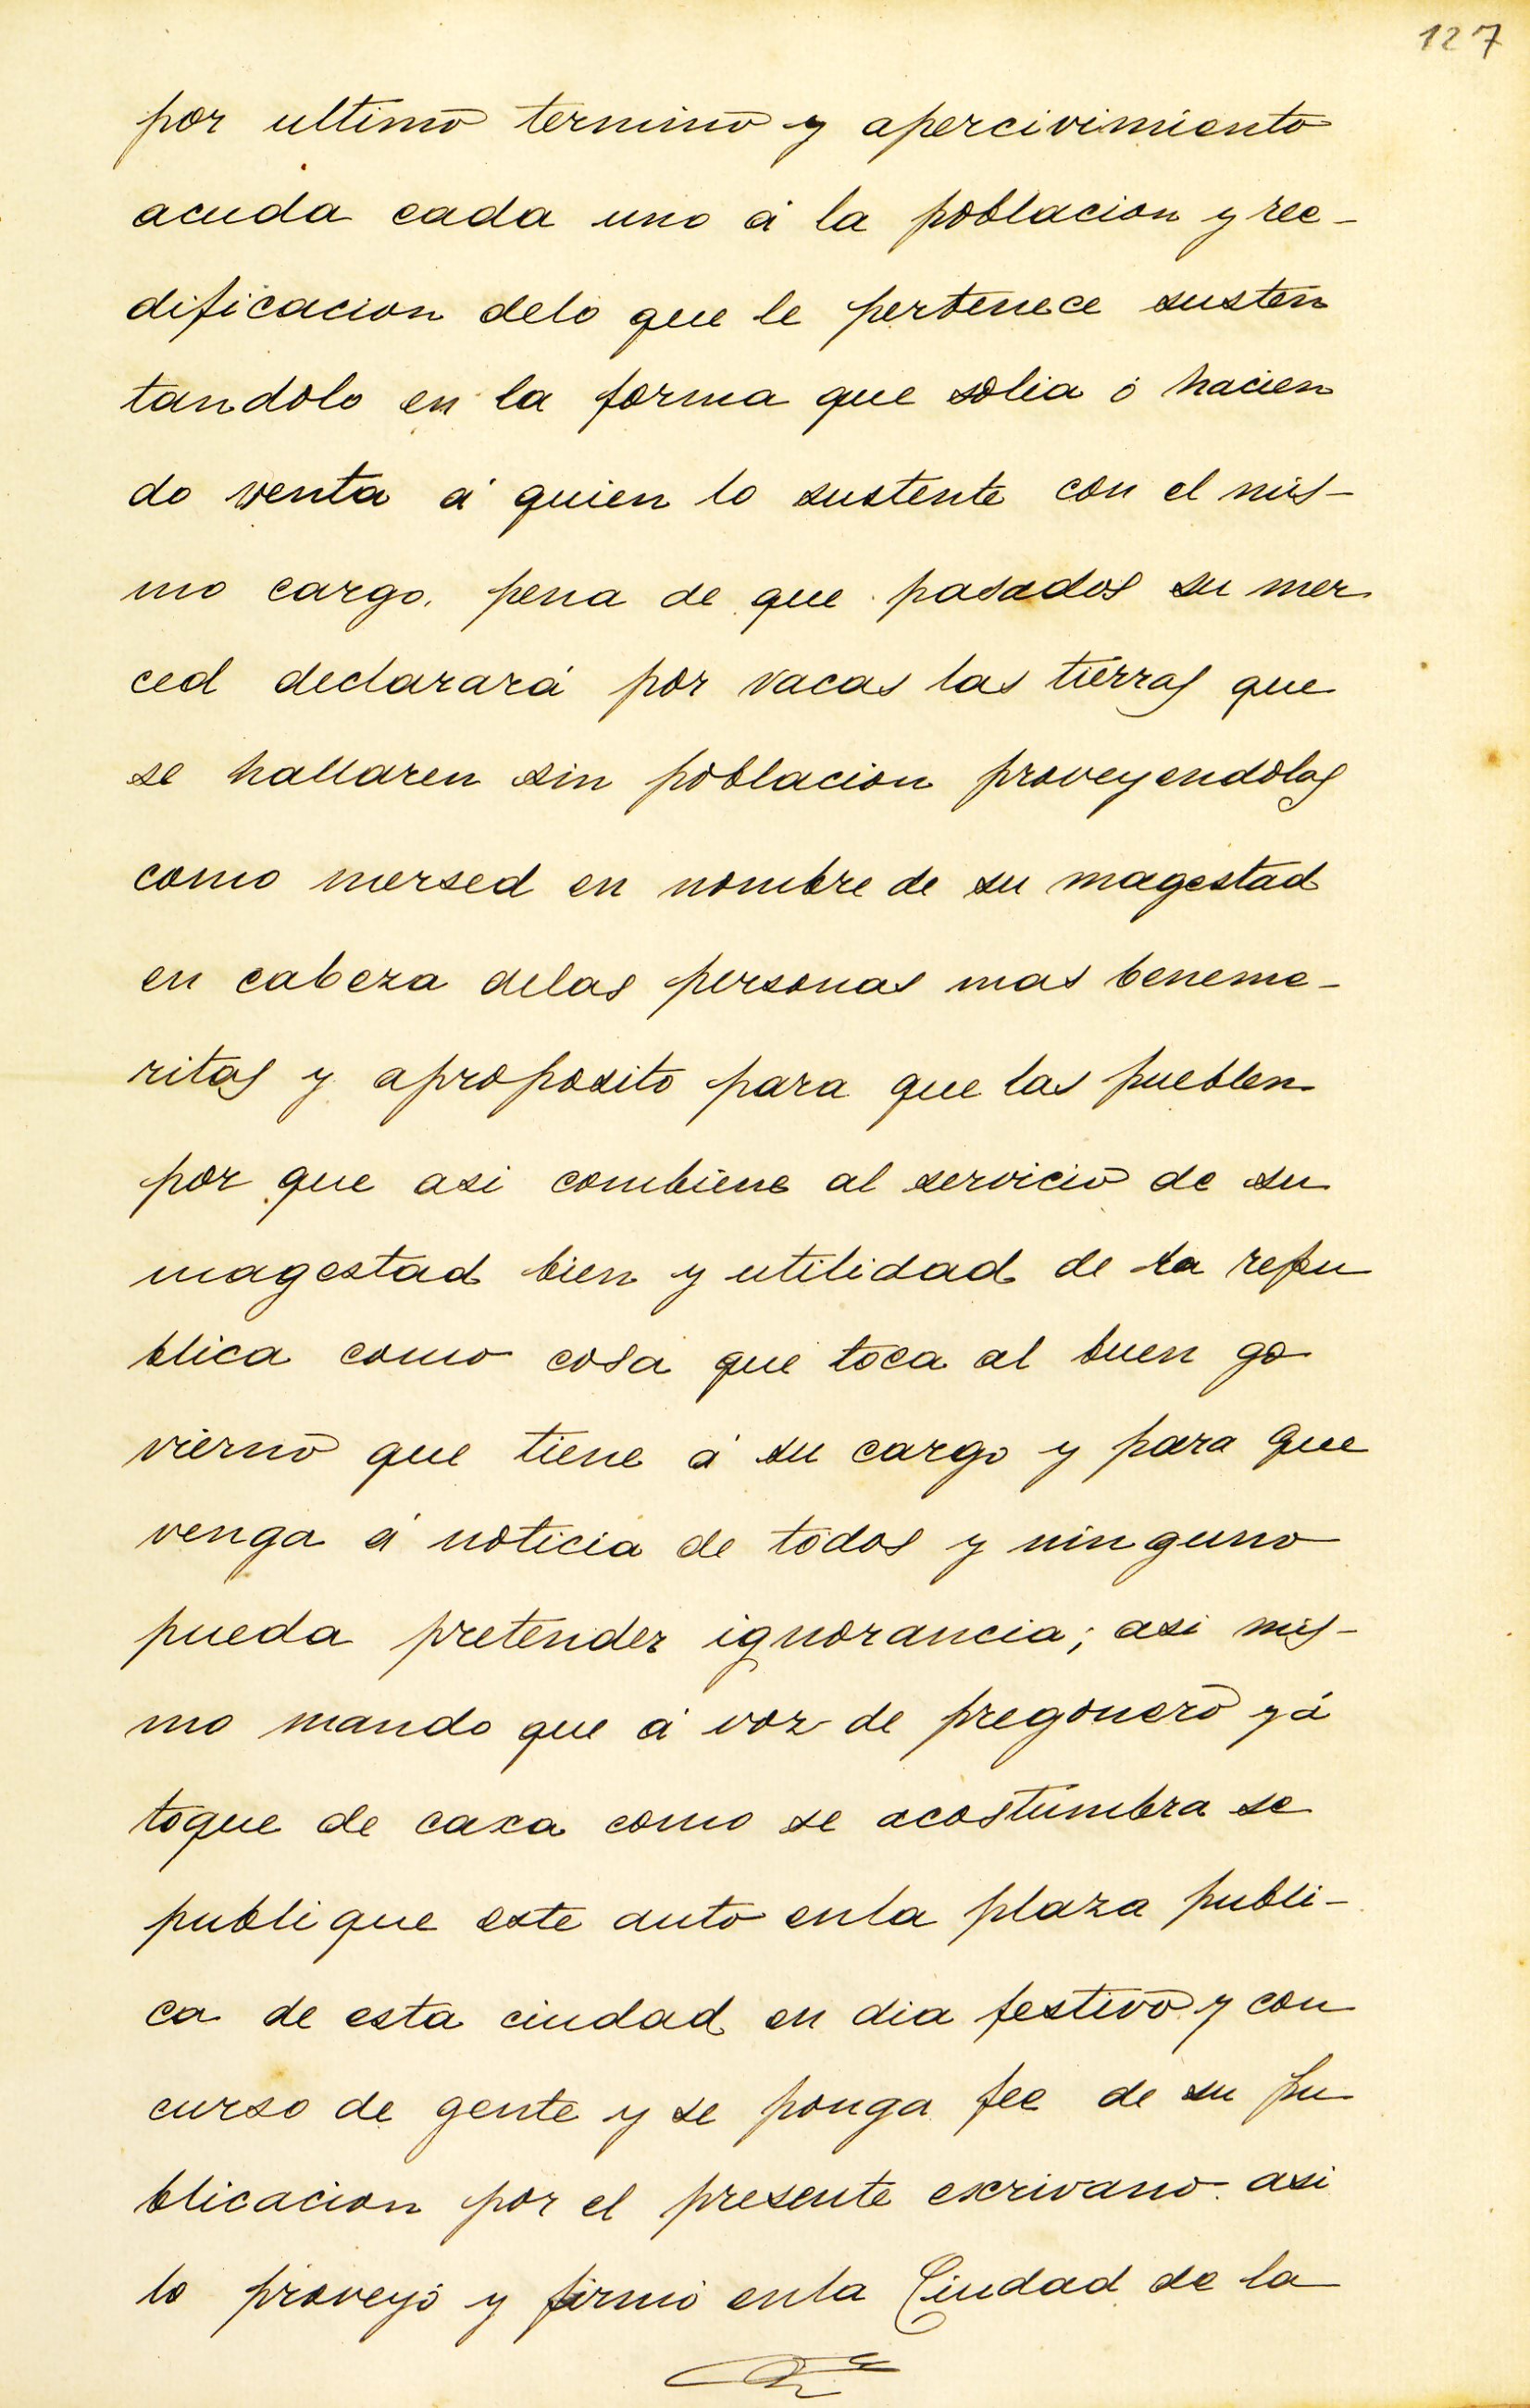 127
por ultimo termino y apercivimiento
acuda cada uno á la poblacion y ree-
dificacion delo que le pertenece susten
tandolo en la forma que solia ó hacien
do venta á quien lo sustente con el mis-
mo cargo. pena de que pasados su mer
ced declarará por vacas las tierras que
se hallaren sin poblacion proveyendolas
como mersed en nombre de su magestad
en cabeza delas personas mas beneme-
ritas y aproposito para que las pueblen
por que asi combiene al servicio de su
magestad bien y utilidad de la repu
blica como cosa que toca al buen go
vierno que tiene á su cargo y para que
venga á noticia de todos y ninguno
pueda pretender ignorancia; asi mis-
mo mando que á voz de pregonero y á
toque de caxa como se acostumbra se
publique este auto enla plaza publi-
ca de esta ciudad en dia festivo y con
curso de gente y se ponga fee de su pu
blicacion por el presente escrivano. asi
lo proveyó y firmó enla Ciudad de la